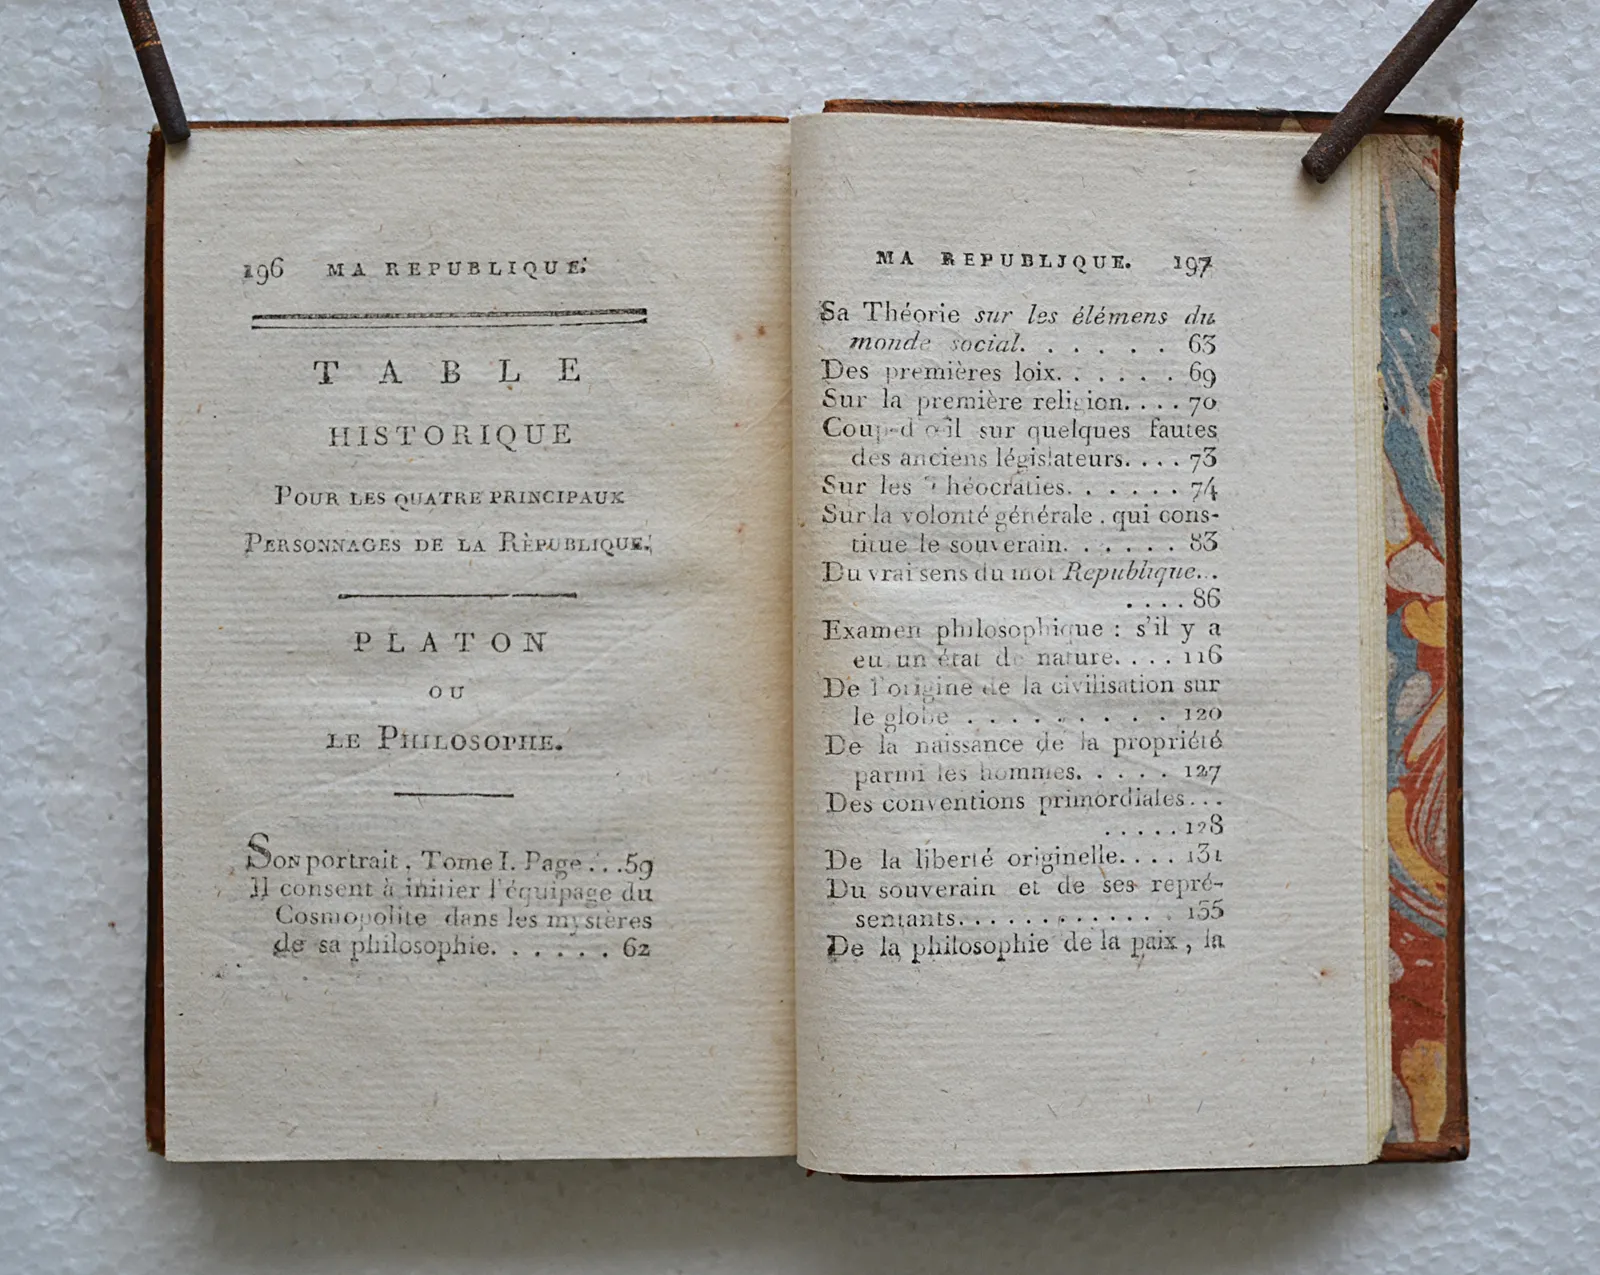 196 MA REPUBLIQUE.
TABLE
HISTORIQUE
POUR LES QUATRE PRINCIPAUX
PERSONNAGES DE LA RÈPUBLIQUE.
PLATON
OU
LE PHILOSOPHE.
SON portrait, Tome I. Page...59
Il consent à initier l'équipage du
Cosmopolite dans les mystères
de sa philosophie. . . . . . 62
MA REPUBLJQUE. 197
Sa Théorie sur les élémens du
monde social. . . . . . 63
Des premières loix. . . . . . 69
Sur la première religion. . . . 70
Coup-d'œil sur quelques fautes
des anciens législateurs. . . . 73
Sur les Théocraties. . . . . . 74
Sur la volonté générale, qui cons-
titue le souverain. . . . . . 83
Du vrai sens du mot Republique...
. . . . 86
Examen philosophique : s'il y a
eu un état de nature. . . . 116
De l'origine de la civilisation sur
le globe . . . . . . . . . . 120
De la naissance de la propriété
parmi les hommes. . . . . 127
Des conventions primordiales...
. . . . . 128
De la liberté originelle. . . . 131
Du souverain et de ses repré-
sentants. . . . . . . . . . . . . 155
De la philosophie de la paix, la